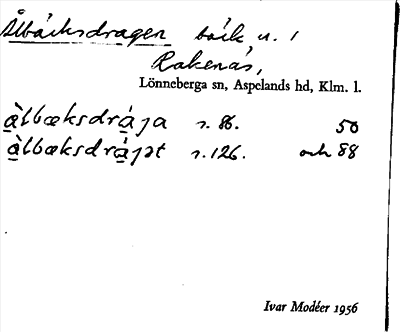 Ålbäcksdragen bäck u. 1
Rakenäs,
Lönneberga sn, Aspelands hd, Klm. l.
å̱̀lbæksdrá̱ja s. 86. 50
å̱̀lbæksdrá̱jət s. 126. och 88
Ivar Modéer 1956